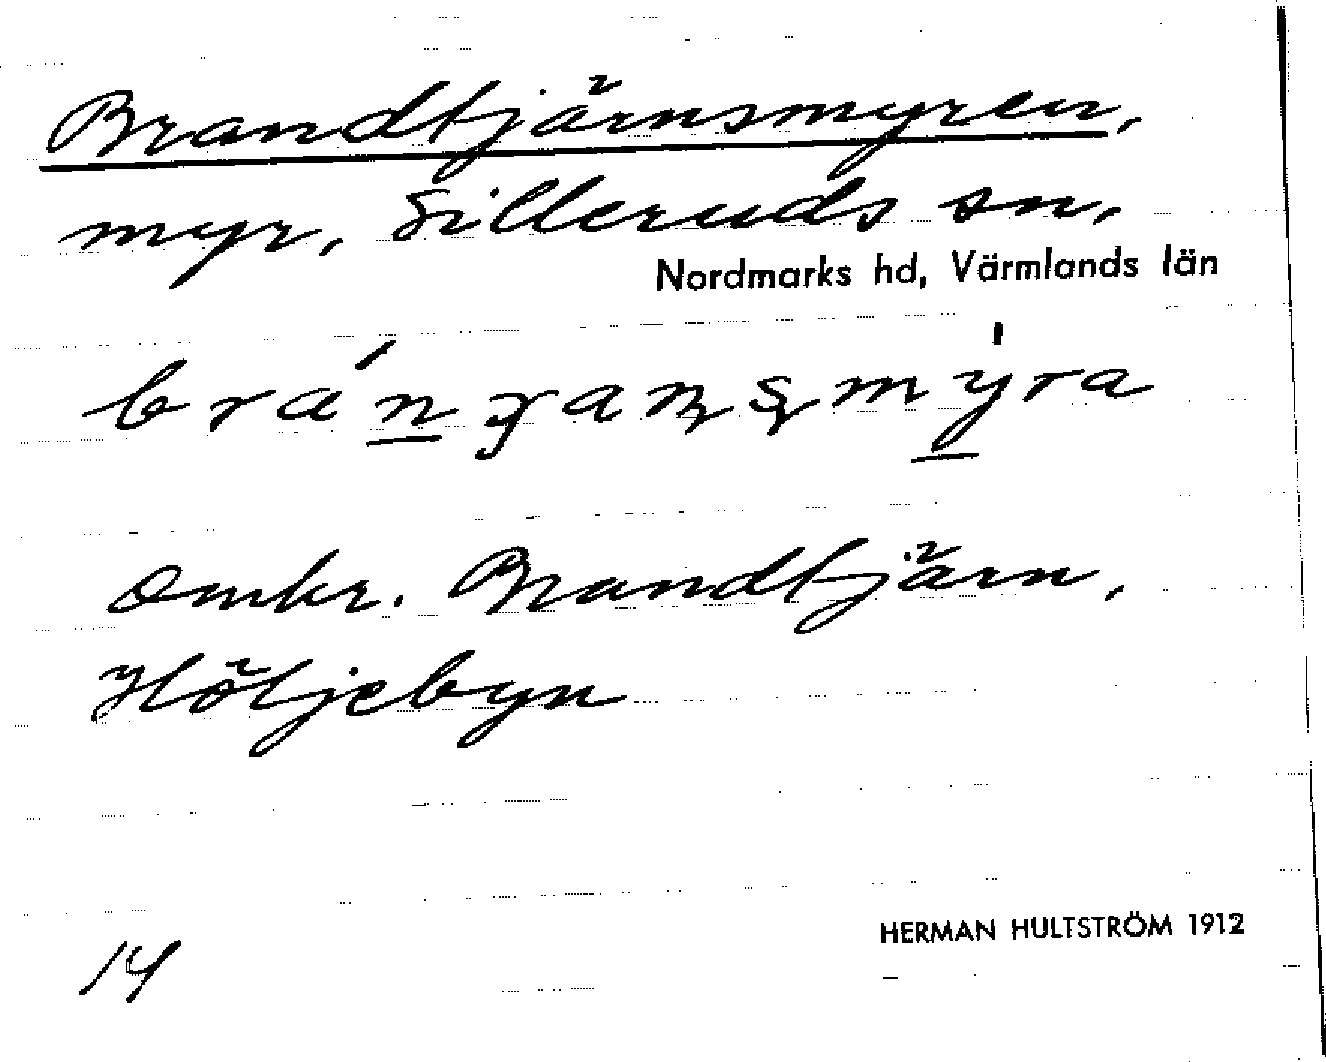 Brandtjärnsmyren,
myr, Silleruds sn,
Nordmarks hd, Värmlands län
Omkr. Brandtjärn,
Höljebyn
HERMAN HULTSTRÖM 1912
14